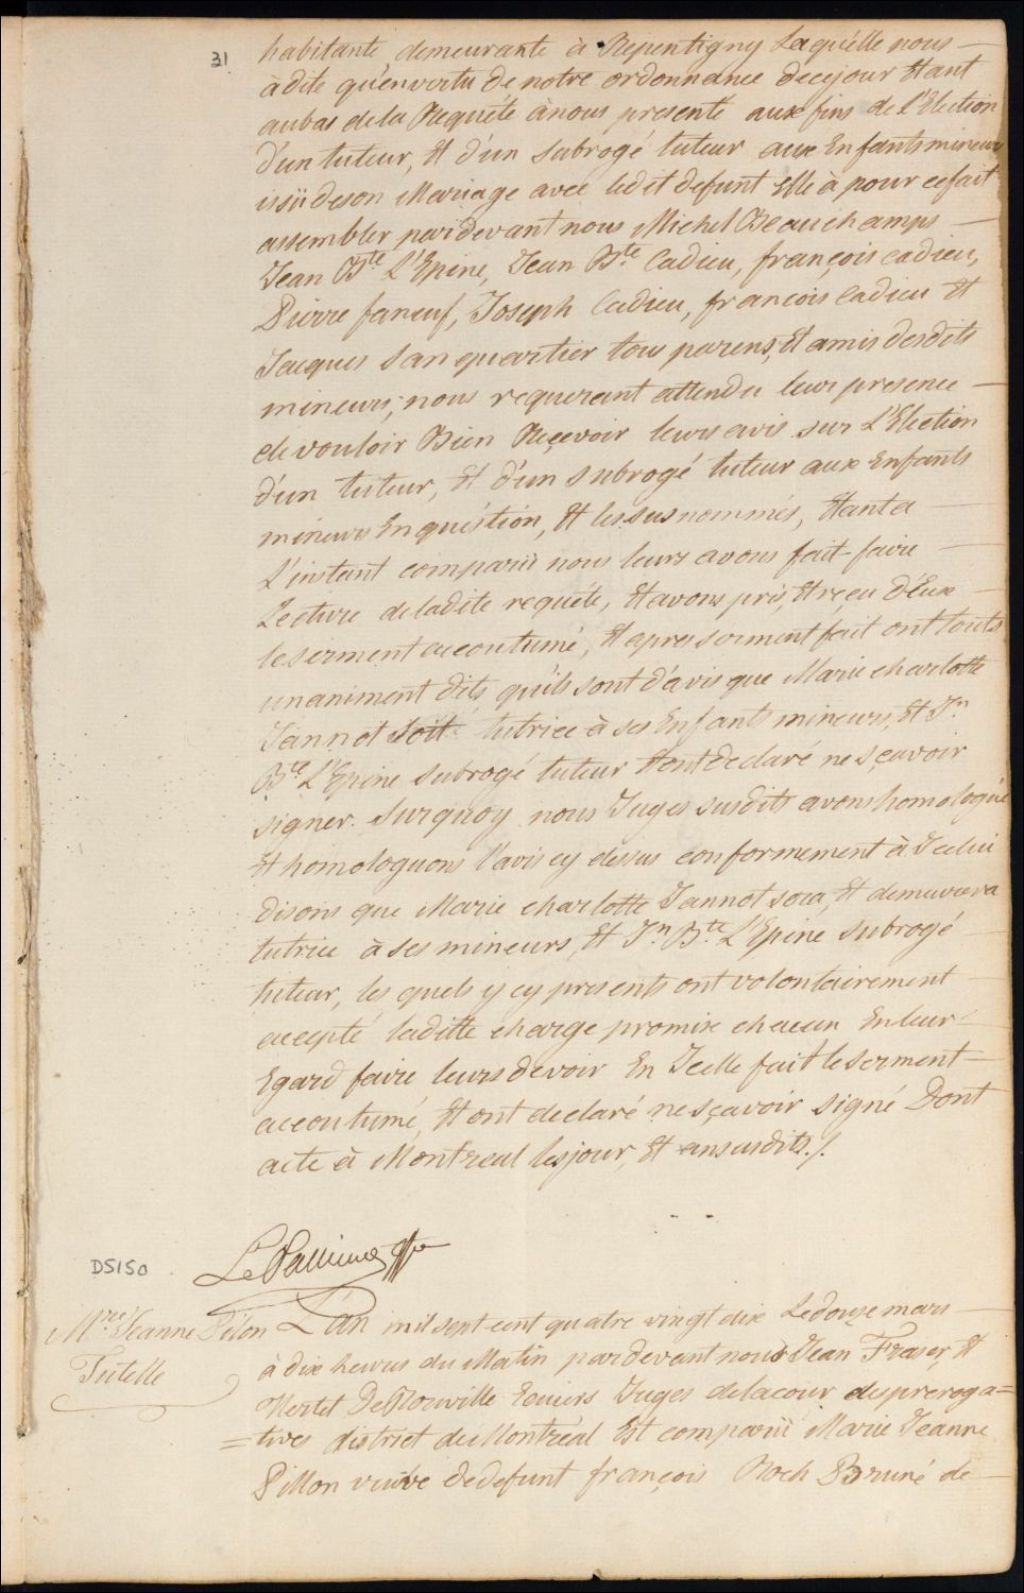 31
habitante demeurante à Repentigny Laquélle nous
à dite qu'envertu de notre ordonnance decejour Etant
aubas dela Requête ànous presenté aux fins de l'Election
d'un tuteur, Et d'un Subrogé tuteur aux Enfants mineurs
issüs deson Mariage avec ledit defunt Elle à pour cefait
assembler pardevant nous Michel Beauchamps
Jean Bte L'Epine, Jean Bte Cadieu, françois cadieu,
Pierre faneuf, Joseph Cadieu, francois Cadieu Et
Jacques Sanquartier tous parens, Et amis desdits
mineurs; nous requerant attendu leur presence
de vouloir Bien Reçevoir leurs avis sur L'Election
d'un tuteur, Et d'un subrogé tuteur aux Enfants
mineurs En quéstion, Et les susnommés, Etant a
L'instant comparü nous leurs avons fait faire
Lecture deladite requête, Et avons pris, Et reçu d'Eux
le serment accoutumé, Et apres serment fait ont touts
unaniment dits qu'ils sont d'avis que Marie charlotte
Jannot Soit tutrice à ses Enfants mineurs, Et Jn
Bte L'Epine Subrogé tuteur Et ont declaré ne sçavoir
signer. Surquoy nous Juges susdits avons homologué
Et homologuons l'avis cy dessus conformement à Icelui
disons que Marie charlotte Jannot sera, Et demeurera
tutrice à ses mineurs, Et Jn Bte L'Epine Subrogé
tuteur, les quels y cy presents ont volontairement
accepté laditte charge promise chacun En leur
Egard faire leurs devoir En Icelle fait le serment
accoutumé, Et ont declaré nesçavoir signé Dont
acte à Montreal lesjour, Et an susdits./.
LePallieur Gffr
DS150
Mrie Jeanne Pilon
Tutelle
L'an mil sept cent quatre vingt dix Ledouze mars
à dix heures du Matin pardevant nous Jean Fraser, Et
Hertel DeRouville Ecuiers Juges delacour des preroga=
=tives district de Montréal Est comparüe Marie Jeanne
Pillon veuve dedefunt françois Roch Bruné de